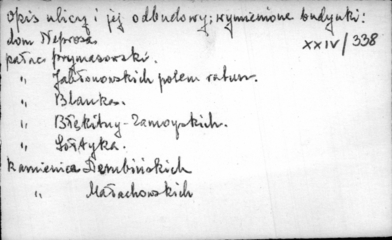 Opis ulicy i jej odbudowy; wymienione budynki:
dom Neprosa
XXIV/338
pałac prymasowski.
" Jabłonowskich potem ratusz.
" Blanka.
" Błękitny-Zamoyskich.
" Sołtyka.
Kamienica Dembińskich
" Małachowskich